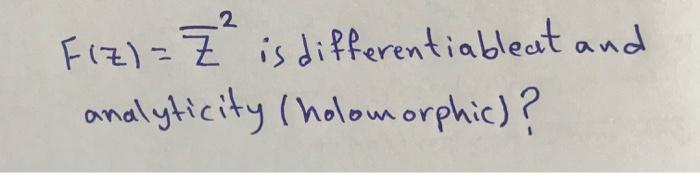 F(z) = z̅² is differentiableat and
analyticity (holomorphic)?